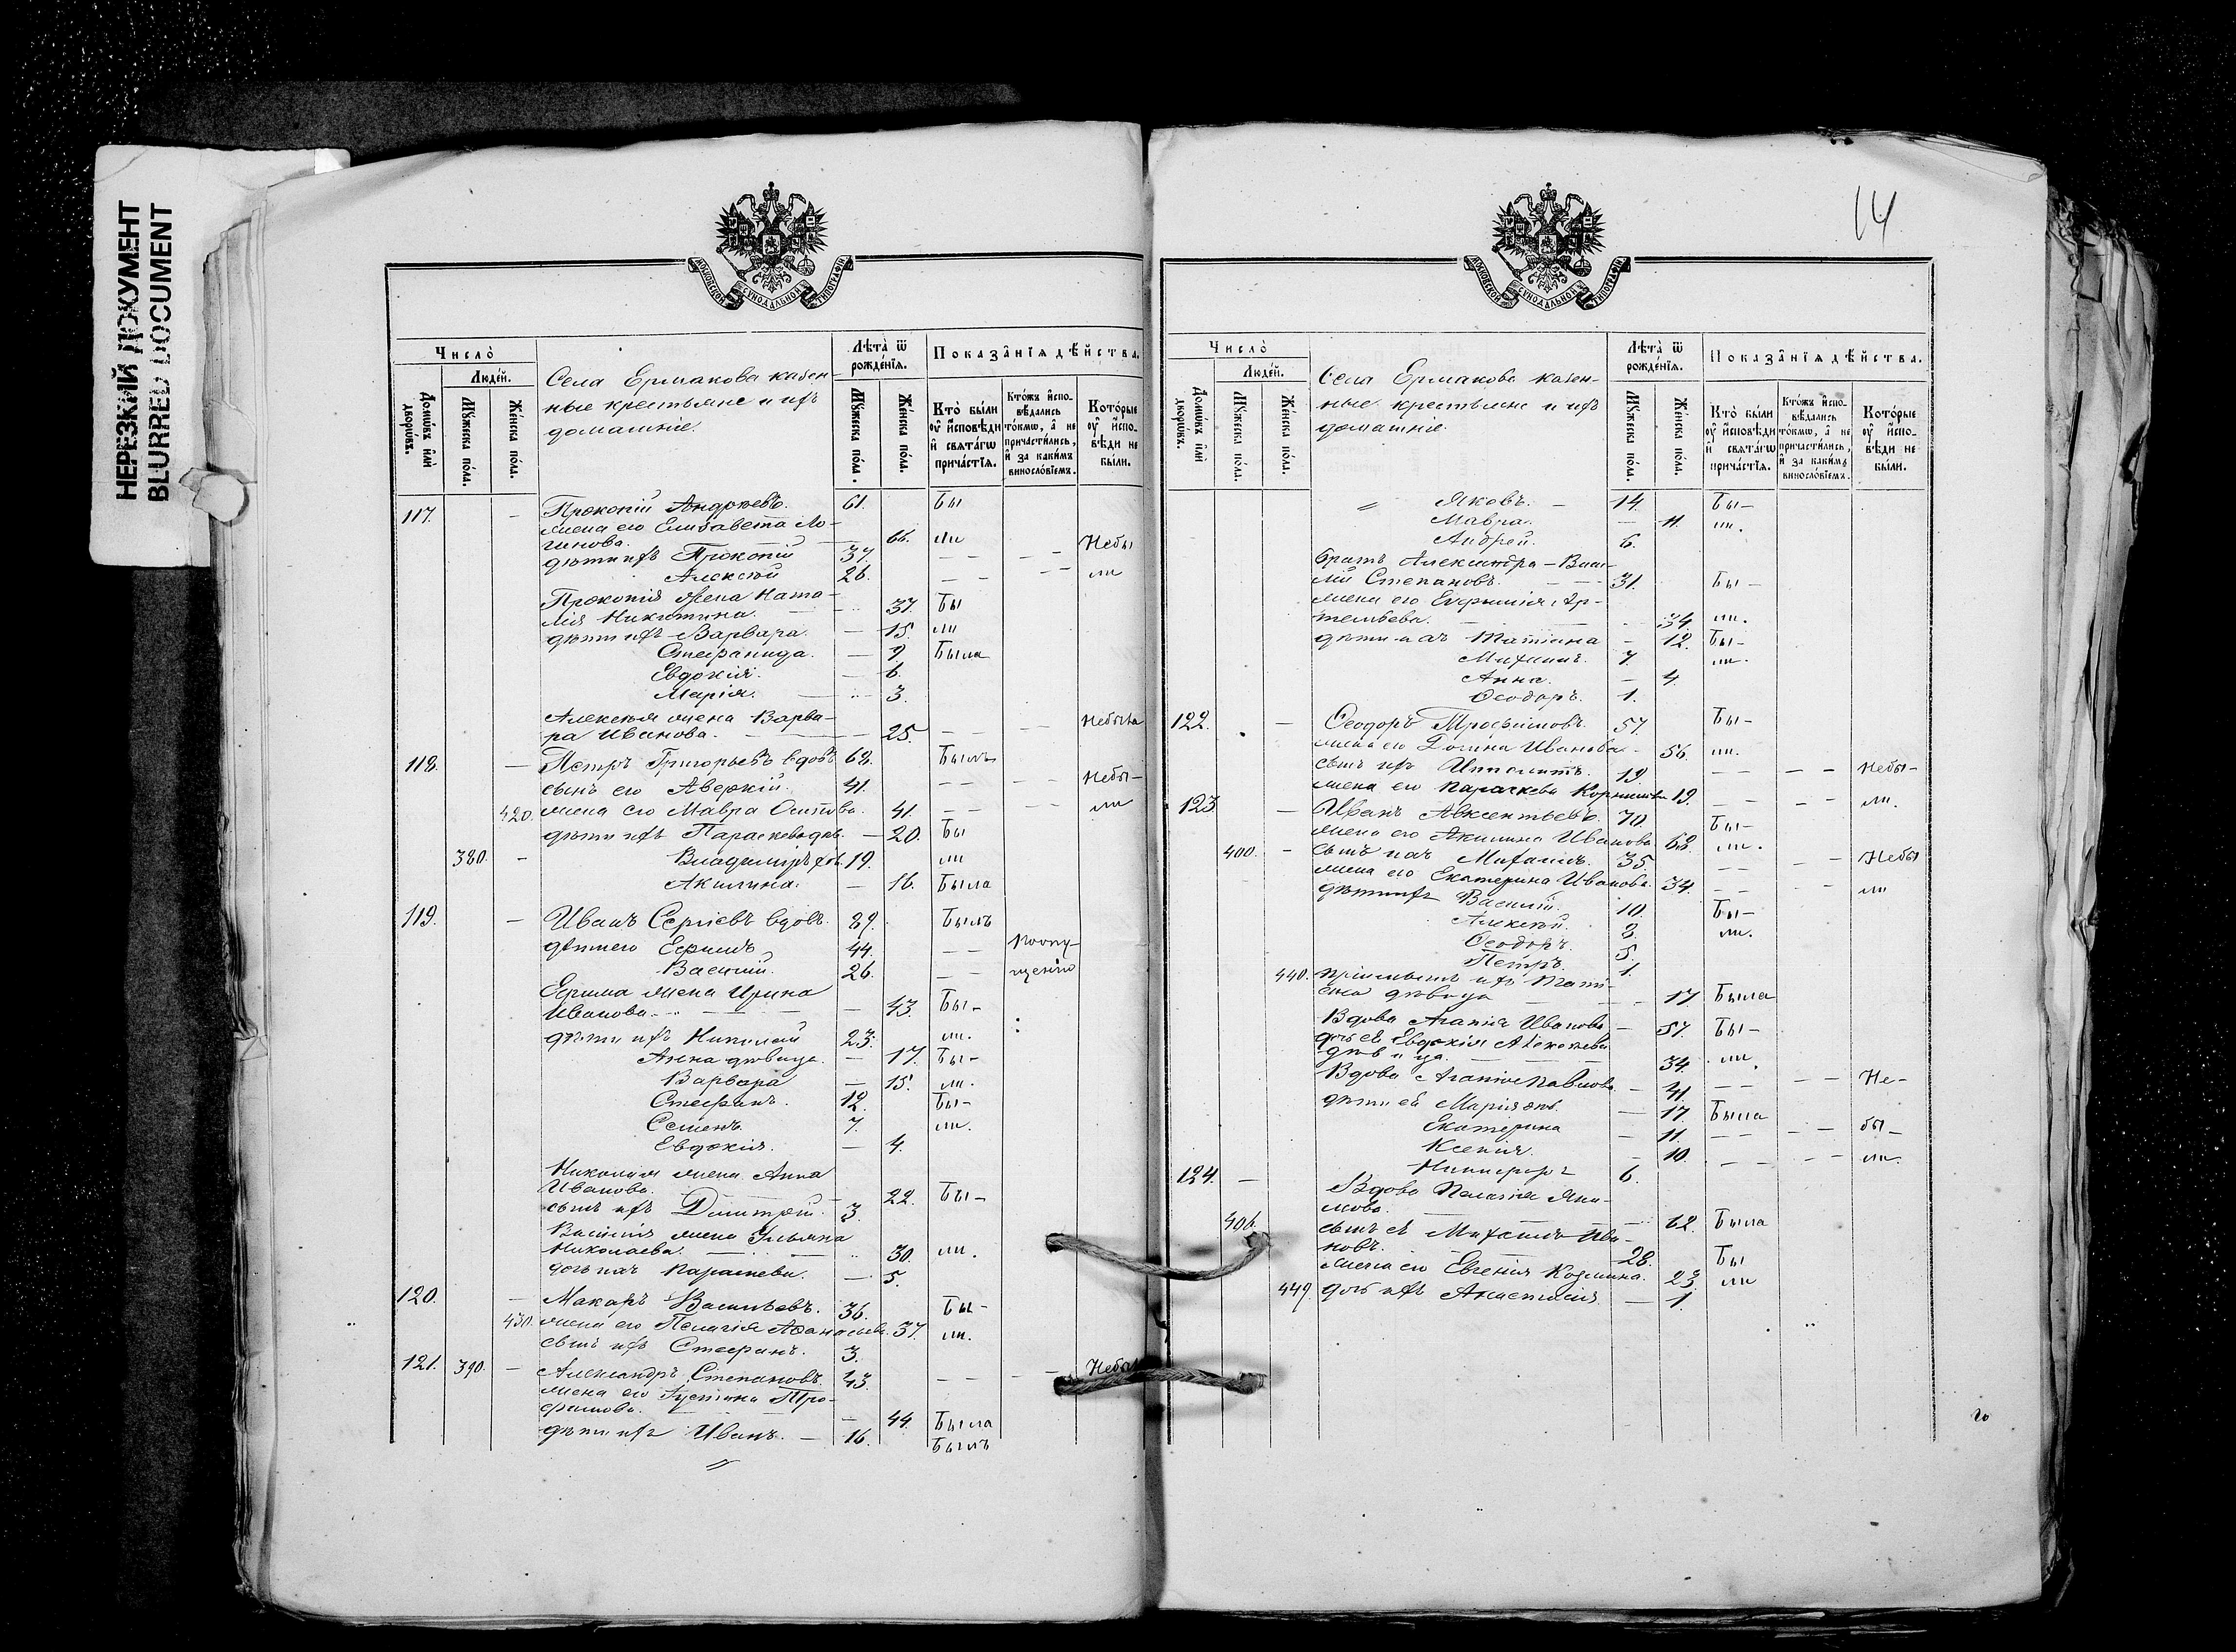 НЕРЕЗКИЙ ДОКУМЕНТ
BLURRED DOCUMENT
МОСКОВСКОЙ СѴНОДАЛЬНОЙ ТИПОГРАФІИ
Число̀
Люде́й.
Домѡ́въ и҆лѝ дворѡ́въ.
Мꙋ́жеска по́ла.
Же́нска по́ла.
Села Ермакова казен-
ные крестьяне и ихъ
домашніе.
Лѣта̀ ѿ рожде́нїѧ.
Мꙋ́жеска по́ла.
Же́нска по́ла.
Показа̑нїѧ дѣ́йства.
Кто̀ бы́ли ᲂу҆ и҆сповѣди и҆ свѧта́гѡ прича́стїѧ.
Кто́жъ и҆спо-вѣдались то́кмѡ, а҆ не причасти́лись, и҆ за каки́мъ виносло́вїемъ.
Кото́рые ᲂу҆ и҆спо-вѣди не бы́ли.
117. Прокопій Андреевъ. 61. Бы
жена его Елизавета Ло-
гинова. 66. ли
дѣти ихъ Прокопій 37. — — — Небы
Алексѣй 26. — — — — ли
Прокопія жена Ната-
лія Никитина. 37. Бы
дѣти ихъ Варвара. — 15. ли
Стефанида. — 9 Была
Евдокія. — 6.
Марія. — 3.
Алексѣя жена Варва-
ра Иванова. — 25. — — Небыла
118. — Петръ Григорьевъ вдовъ 68. Былъ
сынъ его Аверкій. 41. — — — — Небы-
420. жена его Мавра Осипова. 41. — — — — ли
дѣти ихъ Параскева двъ. — 20. Бы
380. — Владимиръ 19. ли
Акилина. — 16. Была
119. — Иванъ Сергіевъ вдовъ. 89. Былъ
дѣти его Ефимъ 44. — — По опу-
Василій. 26. — — щенію
Ефима жена Ирина
Иванова. — 43. Бы-
дѣти ихъ Николай 23. ли.
Анна дѣвица. — 17. Бы-
Варвара — 15. ли.
Стефанъ. 12. Бы-
Семенъ. 7. ли.
Евдокія. — 4.
Николая жена Анна
Иванова. 22. Бы-
сынъ ихъ Димитрій. 3.
Василія жена Ульяна
Николаева. 30. ли.
дочь ихъ Параскева. — 5.
120. — Макаръ Васильевъ. 36. Бы-
430. жена его Пелагія Афанасьева 37. ли.
сынъ ихъ Стефанъ. 3.
121. 390. — Александръ Степановъ. 43. — — — Небылъ
жена его Іустина Тро-
фимова. — 44. Была
дѣти ихъ Иванъ. — 16. Былъ
14
МОСКОВСКОЙ СѴНОДАЛЬНОЙ ТИПОГРАФІИ
Число̀
Люде́й.
Домѡ́въ и҆лѝ дворѡ́въ.
Мꙋ́жеска по́ла.
Же́нска по́ла.
Села Ермакова казен-
ные крестьяне и ихъ
домашніе.
Лѣта̀ ѿ рожде́нїѧ.
Мꙋ́жеска по́ла.
Же́нска по́ла.
Показа̑нїѧ дѣ́йства.
Кто̀ бы́ли ᲂу҆ и҆сповѣди и҆ свѧта́гѡ прича́стїѧ.
Кто́жъ и҆спо-вѣдались то́кмѡ, а҆ не причасти́лись, и҆ за каки́мъ виносло́вїемъ.
Кото́рые ᲂу҆ и҆спо-вѣди не бы́ли.
Яковъ. — 14. Бы-
Мавра. — 11. ли.
Андрей. 6.
братъ Александра — Васи-
лій Степановъ. — 31. Бы-
жена его Ефимія Ар-
темьева. 34. ли.
дѣти ихъ Татіана — 12. Бы-
Михаилъ. 7. ли.
Анна. — 4.
Феодоръ. 1.
122. — Феодоръ Трофимовъ. 57. Бы-
жена его Иванова — 56. ли.
сынъ ихъ Ипполитъ. 19. — — — — Небы-
жена его Параскева Корнилова 19. — — — — ли.
123. — Иванъ Авксентьевъ. 70. Бы-
жена его Акилина Иванова 68. ли.
400. — сынъ ихъ Михаилъ. 35. — — — — Небы
жена его Екатерина Иванова. 34. — — — — ли
дѣти ихъ Василій. 10. Бы-
Алексѣй. 8. ли.
Феодоръ. 5.
Петръ. 1.
440. ихъ Тати-
ана дѣвица — 17 Была
Вдова Агапія Иванова — 57. Бы-
дочь ея Евдокія Алексѣева
дѣвица. 34. ли.
Вдова Агапія Павлова — 41. — — — — Не-
дѣти ея Марія двъ. — 17. Была
Екатерина — 11. — — — — бы-
Ксенія. — 10. — — — — ли.
Никифоръ 6.
124. — Вдова Пелагія Яки-
мова. 62. Была
406. сынъ ея Михаилъ Ива-
новъ. 28. Бы
жена его Евгенія Козмина. 23. ли
449. дочь ихъ Анастасія. — 1.